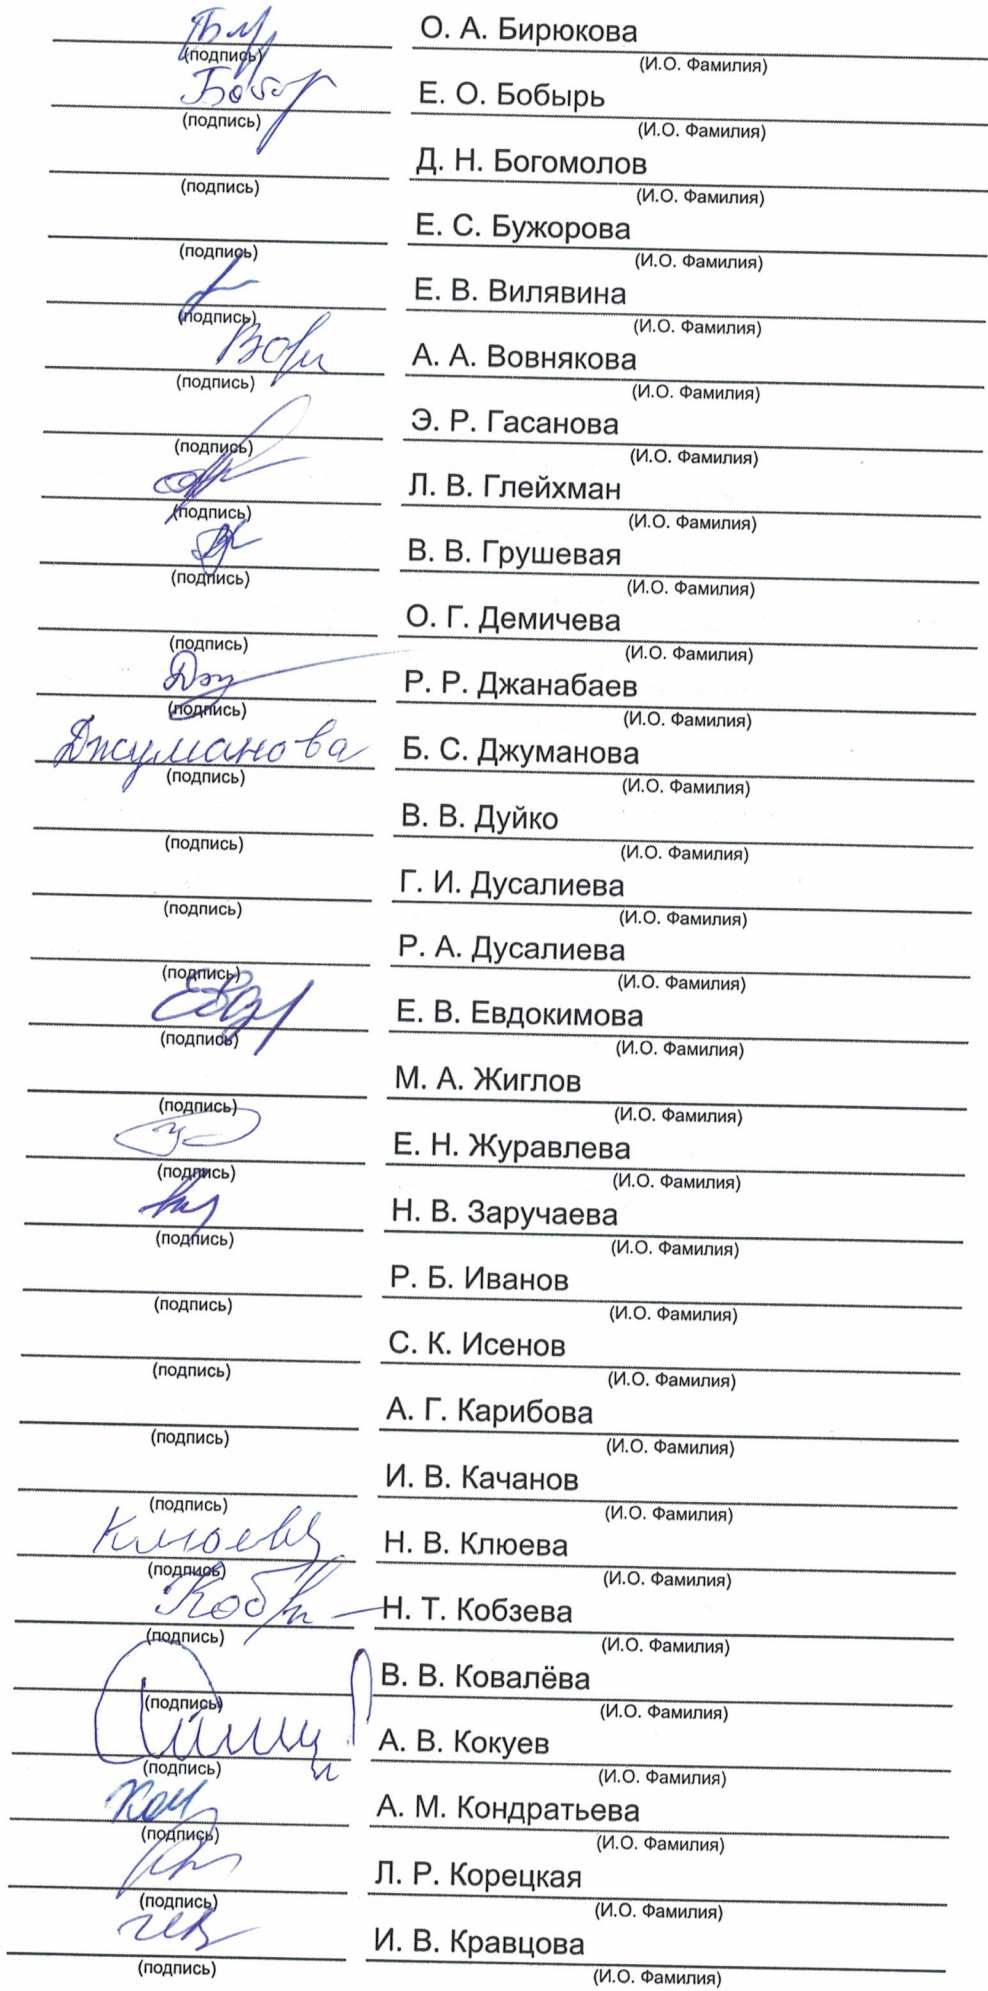 О. А. Бирюкова
(подпись) (И.О. Фамилия)
Е. О. Бобырь
(подпись) (И.О. Фамилия)
Д. Н. Богомолов
(подпись) (И.О. Фамилия)
Е. С. Бужорова
(подпись) (И.О. Фамилия)
Е. В. Вилявина
(подпись) (И.О. Фамилия)
А. А. Вовнякова
(подпись) (И.О. Фамилия)
Э. Р. Гасанова
(подпись) (И.О. Фамилия)
Л. В. Глейхман
(подпись) (И.О. Фамилия)
В. В. Грушевая
(подпись) (И.О. Фамилия)
О. Г. Демичева
(подпись) (И.О. Фамилия)
Р. Р. Джанабаев
(подпись) (И.О. Фамилия)
Джуманова Б. С. Джуманова
(подпись) (И.О. Фамилия)
В. В. Дуйко
(подпись) (И.О. Фамилия)
Г. И. Дусалиева
(подпись) (И.О. Фамилия)
Р. А. Дусалиева
(подпись) (И.О. Фамилия)
Е. В. Евдокимова
(подпись) (И.О. Фамилия)
М. А. Жиглов
(подпись) (И.О. Фамилия)
Е. Н. Журавлева
(подпись) (И.О. Фамилия)
Н. В. Заручаева
(подпись) (И.О. Фамилия)
Р. Б. Иванов
(подпись) (И.О. Фамилия)
С. К. Исенов
(подпись) (И.О. Фамилия)
А. Г. Карибова
(подпись) (И.О. Фамилия)
И. В. Качанов
(подпись) (И.О. Фамилия)
Клюева Н. В. Клюева
(подпись) (И.О. Фамилия)
Н. Т. Кобзева
(подпись) (И.О. Фамилия)
В. В. Ковалёва
(подпись) (И.О. Фамилия)
А. В. Кокуев
(подпись) (И.О. Фамилия)
А. М. Кондратьева
(подпись) (И.О. Фамилия)
Л. Р. Корецкая
(подпись) (И.О. Фамилия)
И. В. Кравцова
(подпись) (И.О. Фамилия)